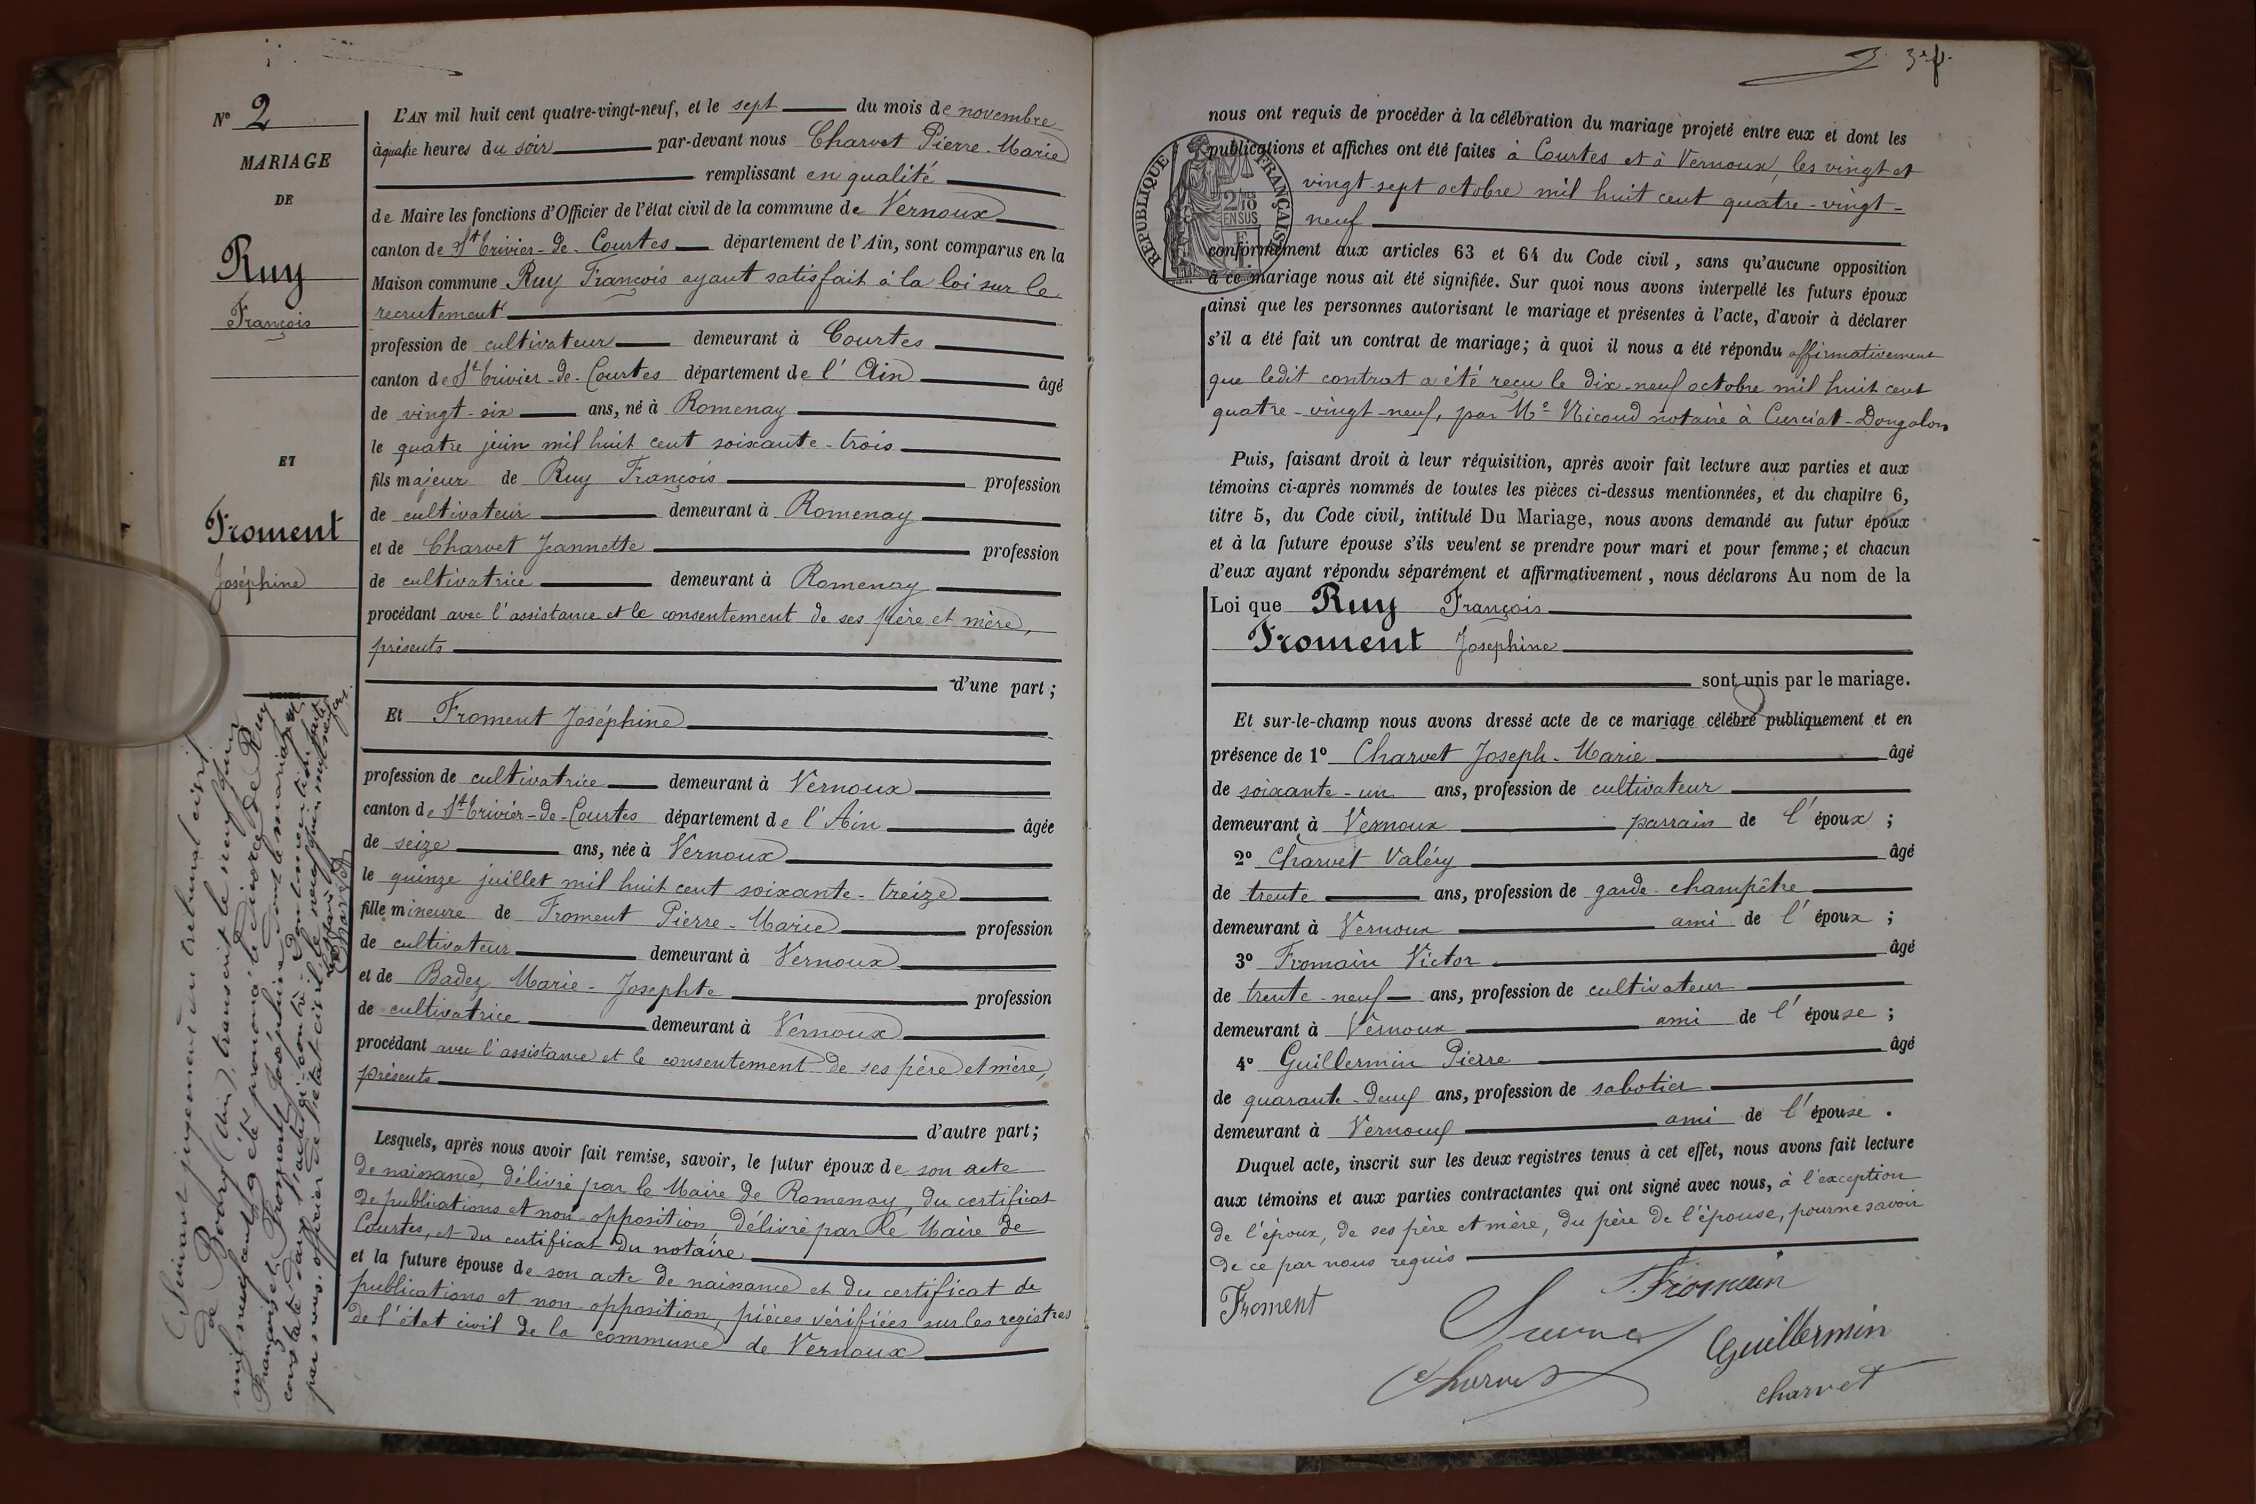 N° 2
MARIAGE
DE
Ruy
François
ET
Froment
Joséphine
Suivant jugement du tribunal civil
de Bourg (Ain), transcrit le neuf juin
mil neuf cent a été prononcé le divorce de Ruy
François et Froment Joséphine dont le mariage est
constaté dans l'acte ci-contre. Dont mention faite
par nous, officier de l'état civil, le neuf juin mil neuf
L'AN mil huit cent quatre-vingt-neuf, et le sept du mois de novembre
à quatre heures du soir par-devant nous Charvet Pierre-Marie
remplissant en qualité
de Maire les fonctions d'Officier de l'état civil de la commune de Vernoux
canton de St Trivier-de-Courtes département de l'Ain, sont comparus en la
Maison commune Ruy François ayant satisfait à la loi sur le
recrutement
profession de cultivateur demeurant à Courtes
canton de St Trivier-de-Courtes département de l'Ain âgé
de vingt-six ans, né à Romenay
le quatre juin mil huit cent soixante-trois
fils majeur de Ruy François profession
de cultivateur demeurant à Romenay
et de Charvet Jeannette profession
de cultivatrice demeurant à Romenay
procédant avec l'assistance et le consentement de ses père et mère,
présents
d'une part ;
Et Froment Joséphine
profession de cultivatrice demeurant à Vernoux
canton de St Trivier-de-Courtes département de l'Ain âgée
de seize ans, née à Vernoux
le quinze juillet mil huit cent soixante-treize
fille mineure de Froment Pierre-Marie profession
de cultivateur demeurant à Vernoux
et de Badez Marie-Josephte profession
de cultivatrice demeurant à Vernoux
procédant avec l'assistance et le consentement de ses père et mère,
présents
d'autre part ;
Lesquels, après nous avoir fait remise, savoir, le futur époux de son acte
de naissance, délivré par le Maire de Romenay, du certificat
de publications et non-opposition délivré par le Maire de
Courtes, et du certificat du notaire
et la future épouse de son acte de naissance et du certificat de
publications et non-opposition, pièces vérifiées sur les registres
de l'état civil de la commune de Vernoux
nous ont requis de procéder à la célébration du mariage projeté entre eux et dont les
publications et affiches ont été faites à Courtes et à Vernoux, les vingt et
vingt-sept octobre mil huit cent quatre-vingt-
neuf
RÉPUBLIQUE FRANÇAISE
2/10 EN SUS
conformément aux articles 63 et 64 du Code civil, sans qu'aucune opposition
à ce mariage nous ait été signifiée. Sur quoi nous avons interpellé les futurs époux
ainsi que les personnes autorisant le mariage et présentes à l'acte, d'avoir à déclarer
s'il a été fait un contrat de mariage ; à quoi il nous a été répondu affirmativement
que ledit contrat a été reçu le dix-neuf octobre mil huit cent
quatre-vingt-neuf, par Me Nicoud notaire à Curciat-Dongalon
Puis, faisant droit à leur réquisition, après avoir fait lecture aux parties et aux
témoins ci-après nommés de toutes les pièces ci-dessus mentionnées, et du chapitre 6,
titre 5, du Code civil, intitulé Du Mariage, nous avons demandé au futur époux
et à la future épouse s'ils veulent se prendre pour mari et pour femme ; et chacun
d'eux ayant répondu séparément et affirmativement, nous déclarons Au nom de la
Loi que Ruy François
Froment Josephine
sont unis par le mariage.
Et sur-le-champ nous avons dressé acte de ce mariage célébré publiquement et en
présence de 1° Charvet Joseph-Marie âgé
de soixante-un ans, profession de cultivateur
demeurant à Vernoux parrain de l'époux ;
2° Charvet Valéry âgé
de trente ans, profession de garde-champêtre
demeurant à Vernoux ami de l'époux ;
3° Fromain Victor âgé
de trente-neuf ans, profession de cultivateur
demeurant à Vernoux ami de l'épouse ;
4° Guillermin Pierre âgé
de quarante-deux ans, profession de sabotier
demeurant à Vernoux ami de l'épouse.
Duquel acte, inscrit sur les deux registres tenus à cet effet, nous avons fait lecture
aux témoins et aux parties contractantes qui ont signé avec nous, à l'exception
de l'époux, de ses père et mère, du père de l'épouse, pour ne savoir
de ce par nous requis
Froment
Fromain
Guillermin
Charvet
charvet